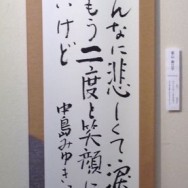 んなに悲しくて涙
もう二度と笑顔に
いけど
中島みゆき